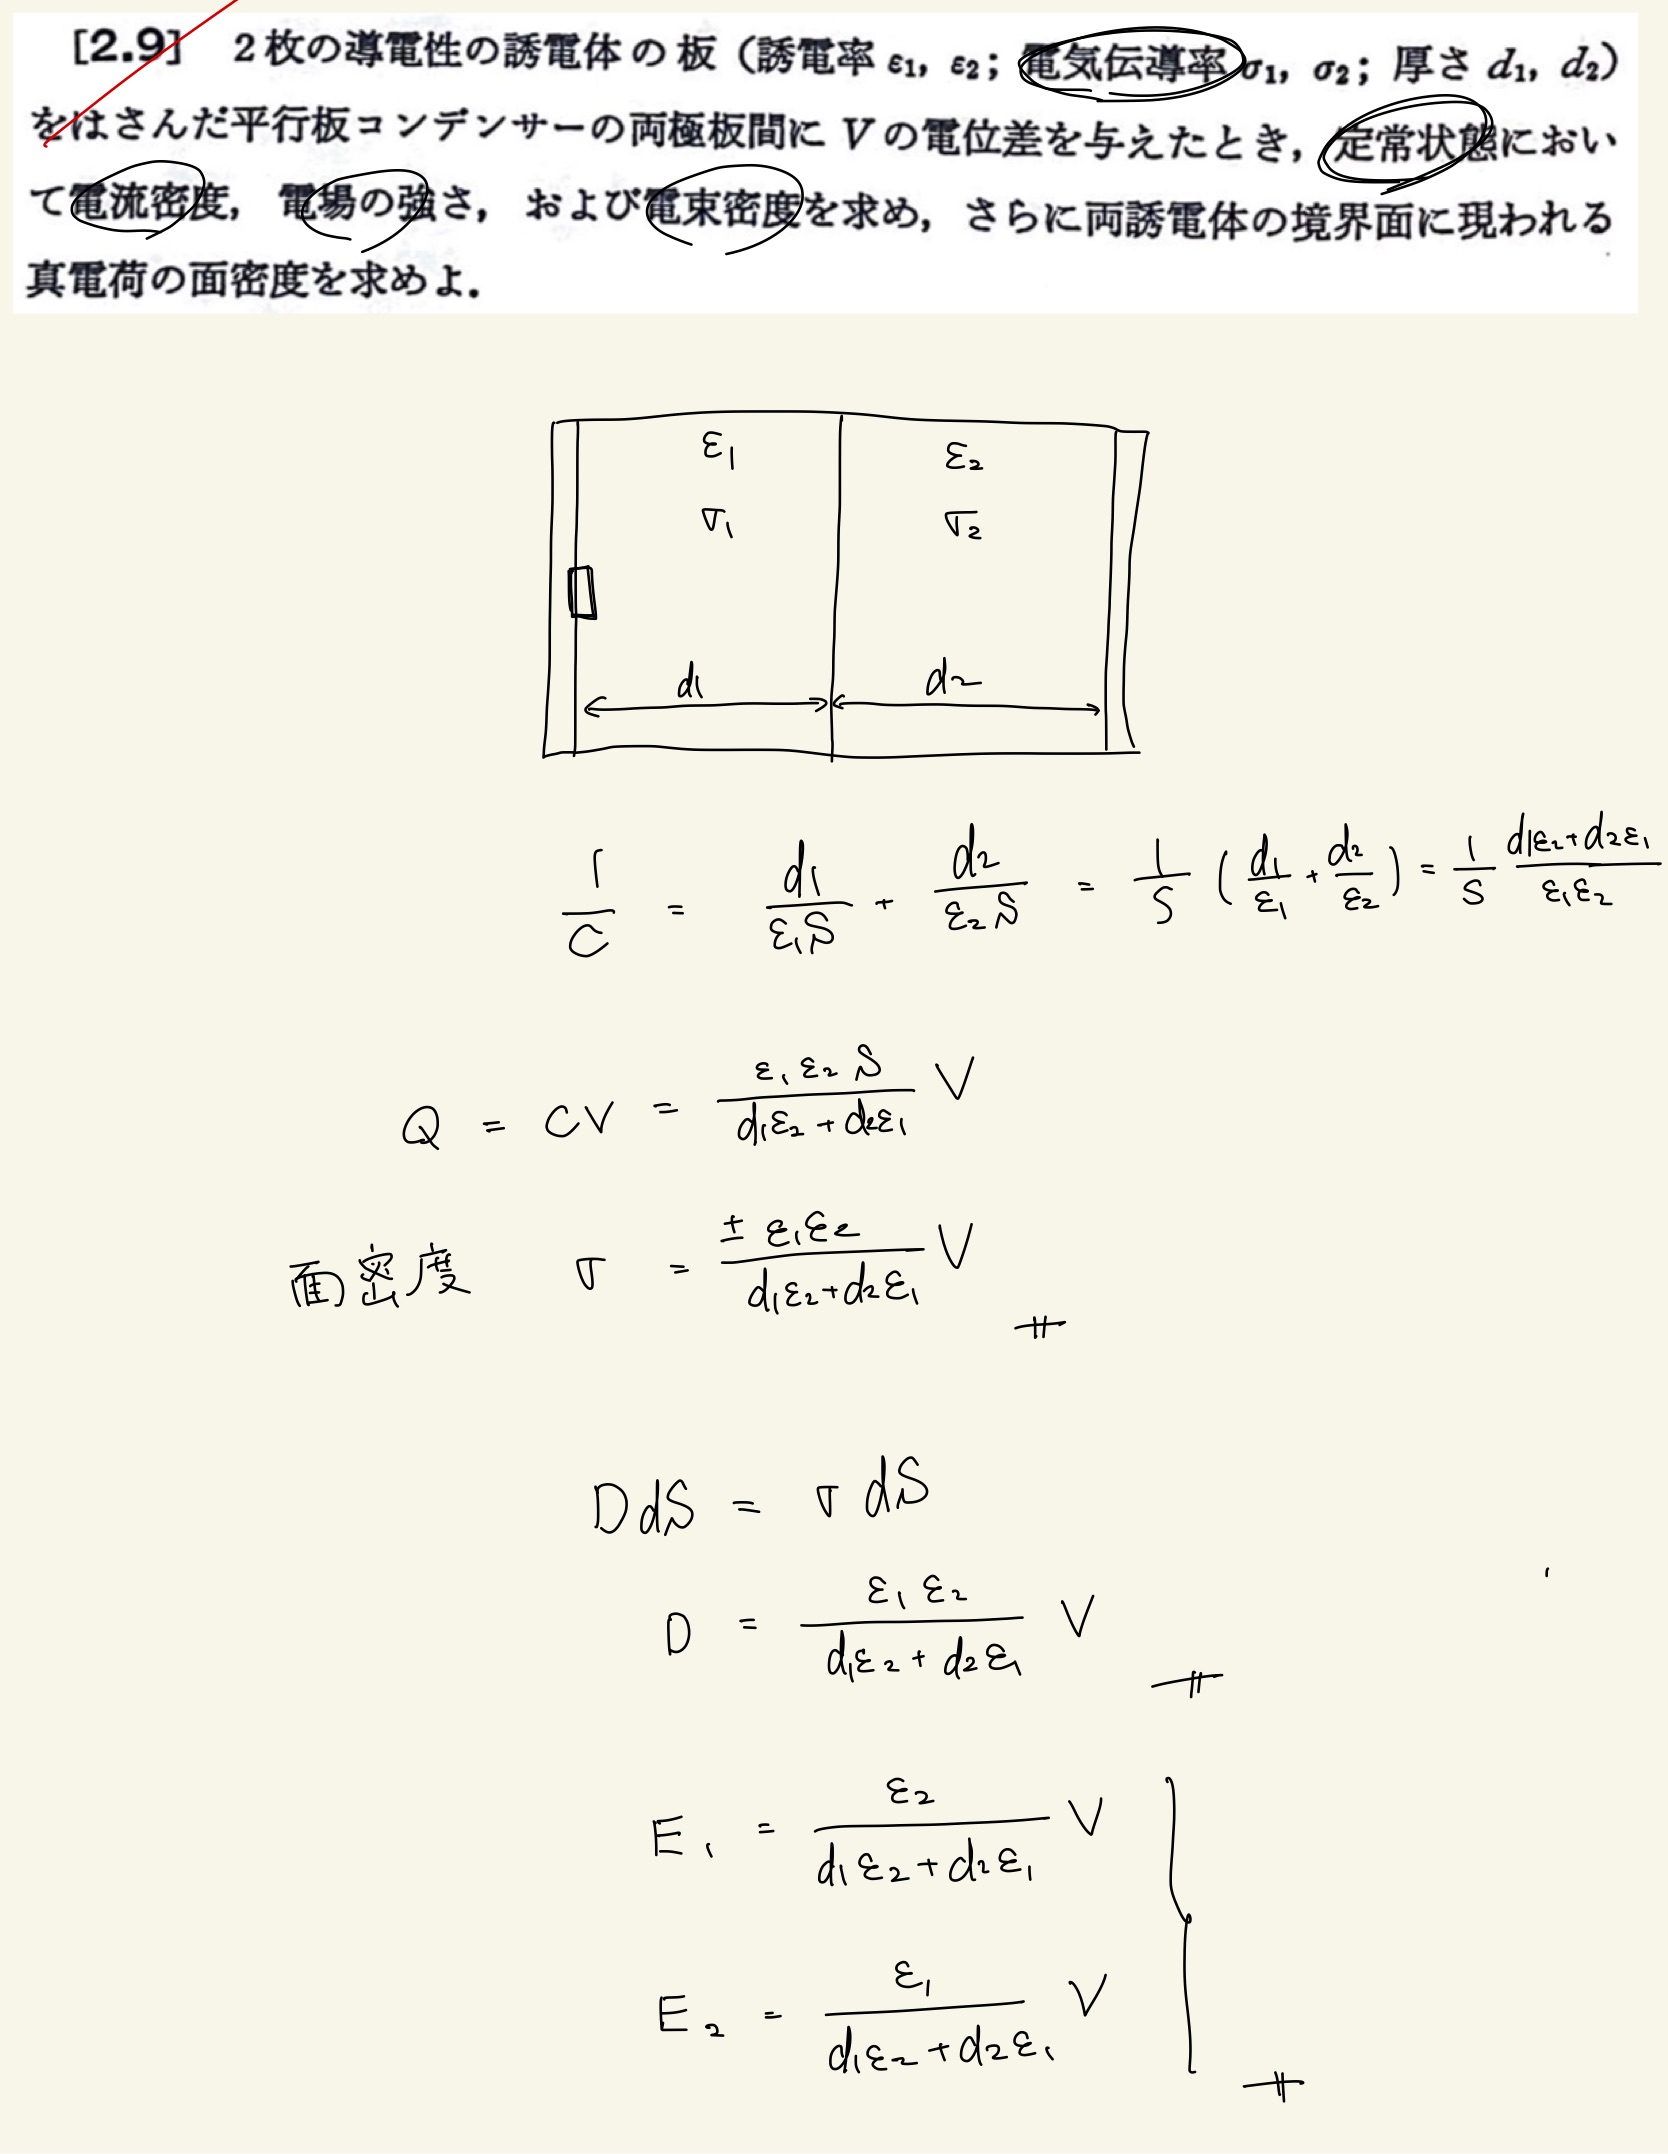 [2.9] 2枚の導電性の誘電体の板（誘電率 ε₁, ε₂; 電気伝導率 σ₁, σ₂; 厚さ d₁, d₂）
をはさんだ平行板コンデンサーの両極板間に V の電位差を与えたとき，定常状態におい
て電流密度，電場の強さ，および電束密度を求め，さらに両誘電体の境界面に現われる
真電荷の面密度を求めよ．
ε₁ ε₂
σ₁ σ₂
d₁ d₂
1/C = d₁/(ε₁S) + d₂/(ε₂S) = 1/S (d₁/ε₁ + d₂/ε₂) = 1/S (d₁ε₂+d₂ε₁)/(ε₁ε₂)
Q = CV = (ε₁ε₂S)/(d₁ε₂+d₂ε₁) V
面密度 σ = (±ε₁ε₂)/(d₁ε₂+d₂ε₁) V
DdS = σdS
D = (ε₁ε₂)/(d₁ε₂+d₂ε₁) V
E₁ = ε₂/(d₁ε₂+d₂ε₁) V
E₂ = ε₁/(d₁ε₂+d₂ε₁) V